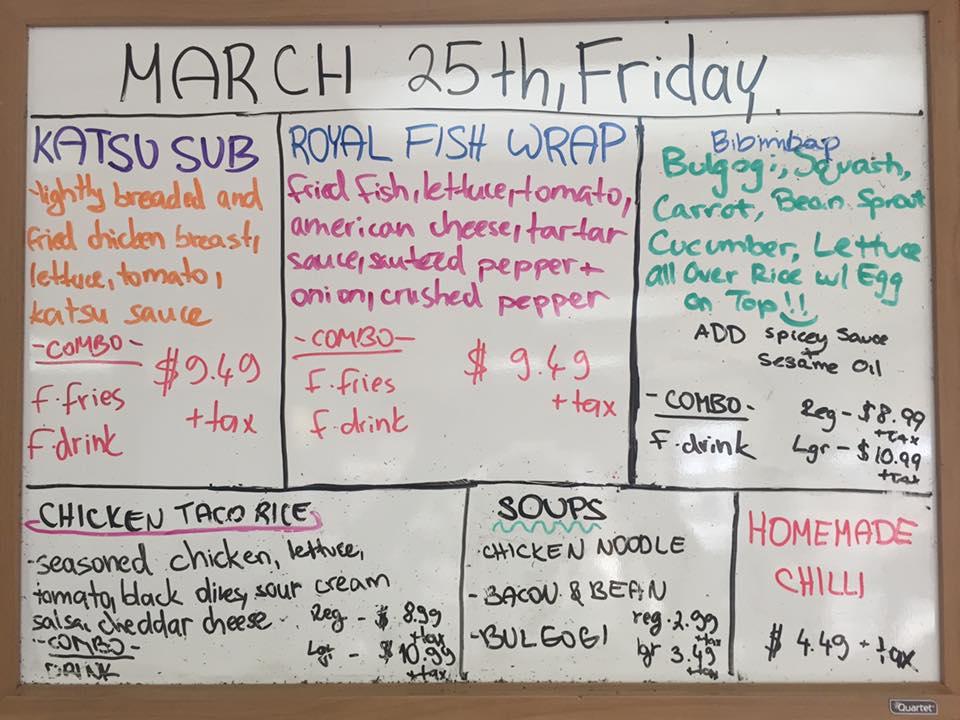 MARCH 25th, Friday
KATSU SUB
-lightly breaded and
fried chicken breast,
lettuce, tomato,
katsu sauce
-COMBO-
$9.49
+tax
F.fries
F.drink
ROYAL FISH WRAP
fried fish, lettuce, tomato,
american cheese, tartar
sauce, sauteed pepper +
onion, crushed pepper
-COMBO-
$ 9.49
+tax
F.fries
F.drink
Bibimbap
Bulgogi, Squash,
Carrot, Bean Sprout
Cucumber, Lettuce
all Over Rice w/ Egg
on Top!!
ADD spicey sauce
+
Sesame Oil
-COMBO-
F.drink
Reg - $8.99
+Tax
Lgr - $10.99
+Tax
CHICKEN TACO RICE
-seasoned chicken, lettuce,
tomato, black olives, sour cream
salsa, cheddar cheese
-COMBO-
DRINK
Reg - $ 8.99
+tax
Lgr - $10.99
+tax
SOUPS
-CHICKEN NOODLE
-BACON & BEAN
-BULGOGI
reg. 2.99
+tax
lgr 3.49
+tax
HOMEMADE
CHILLI
$ 4.49 + tax
Quartet